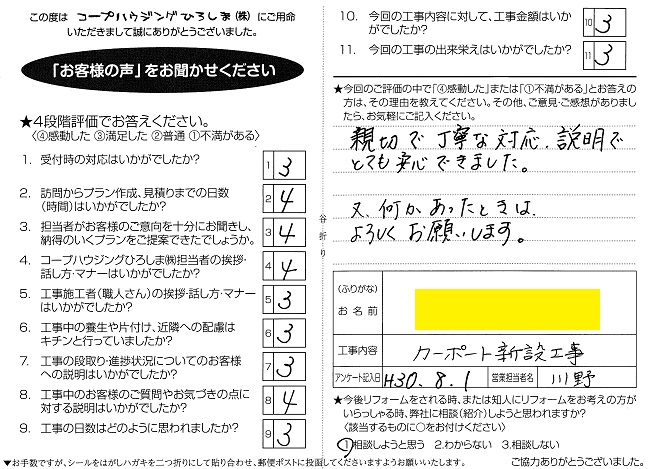 この度は コープハウジングひろしま(株) にご用命
いただきまして誠にありがとうございました。
「お客様の声」をお聞かせください
★4段階評価でお答えください。
〈④感動した ③満足した ②普通 ①不満がある〉
1. 受付時の対応はいかがでしたか？
1 3
2. 訪問からプラン作成、見積りまでの日数
(時間)はいかがでしたか？
2 4
3. 担当者がお客様のご意向を十分にお聞きし、
納得のいくプランをご提案できたでしょうか。
3 4
4. コープハウジングひろしま㈱担当者の挨拶・
話し方・マナーはいかがでしたか？
4 4
5. 工事施工者(職人さん)の挨拶・話し方・マナー
はいかがでしたか？
5 3
6. 工事中の養生や片付け、近隣への配慮は
キチンと行っていましたか？
6 3
7. 工事の段取り・進捗状況についてのお客様
への説明はいかがでしたか？
7 3
8. 工事中のお客様のご質問やお気づきの点に
対する説明はいかがでしたか？
8 4
9. 工事の日数はどのように思われましたか？
9 3
▼お手数ですが、シールをはがしハガキを二つ折りにして貼り合わせ、郵便ポストに投函してくださいますようお願いいたします。
谷折り
10. 今回の工事内容に対して、工事金額はいか
がでしたか？
10 3
11. 今回の工事の出来栄えはいかがでしたか？
11 3
★今回のご評価の中で「④感動した」または「①不満がある」とお答えの
方は、その理由を教えてください。その他、ご意見・ご感想がありまし
たら、お気軽にご記入ください。
親切で丁寧な対応、説明で
とても安心できました。
又、何かあったときは、
よろしくお願いします。
(ふりがな)
お名前
工事内容 カーポート新設工事
アンケート記入日 H30.8.1 営業担当者名 川野
★今後リフォームをされる時、または知人にリフォームをお考えの方が
いらっしゃる時、弊社に相談(紹介)しようと思われますか？
〈該当するものに○をお付けください〉
1.相談しようと思う 2.わからない 3.相談しない
ご協力ありがとうございました。